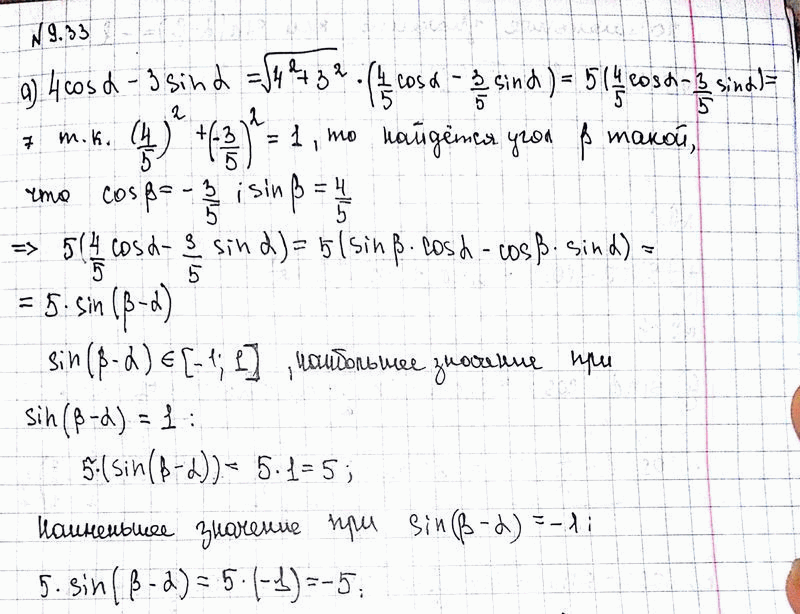 №9.33
а) 4cosα - 3sinα = √(4²+3²) · (4/5 cosα - 3/5 sinα) = 5(4/5 cosα - 3/5 sinα) =
т.к. (4/5)² + (-3/5)² = 1, то найдётся угол β такой,
что cosβ = - 3/5 ; sinβ = 4/5
=> 5(4/5 cosα - 3/5 sinα) = 5(sinβ · cosα - cosβ · sinα) =
= 5 · sin(β-α)
sin(β-α) ∈ [-1; 1] , наибольшее значение при
sin(β-α) = 1 :
5·(sin(β-α)) = 5 · 1 = 5 ;
Наименьшее значение при sin(β-α) = -1 ;
5 · sin(β-α) = 5 · (-1) = -5 ;